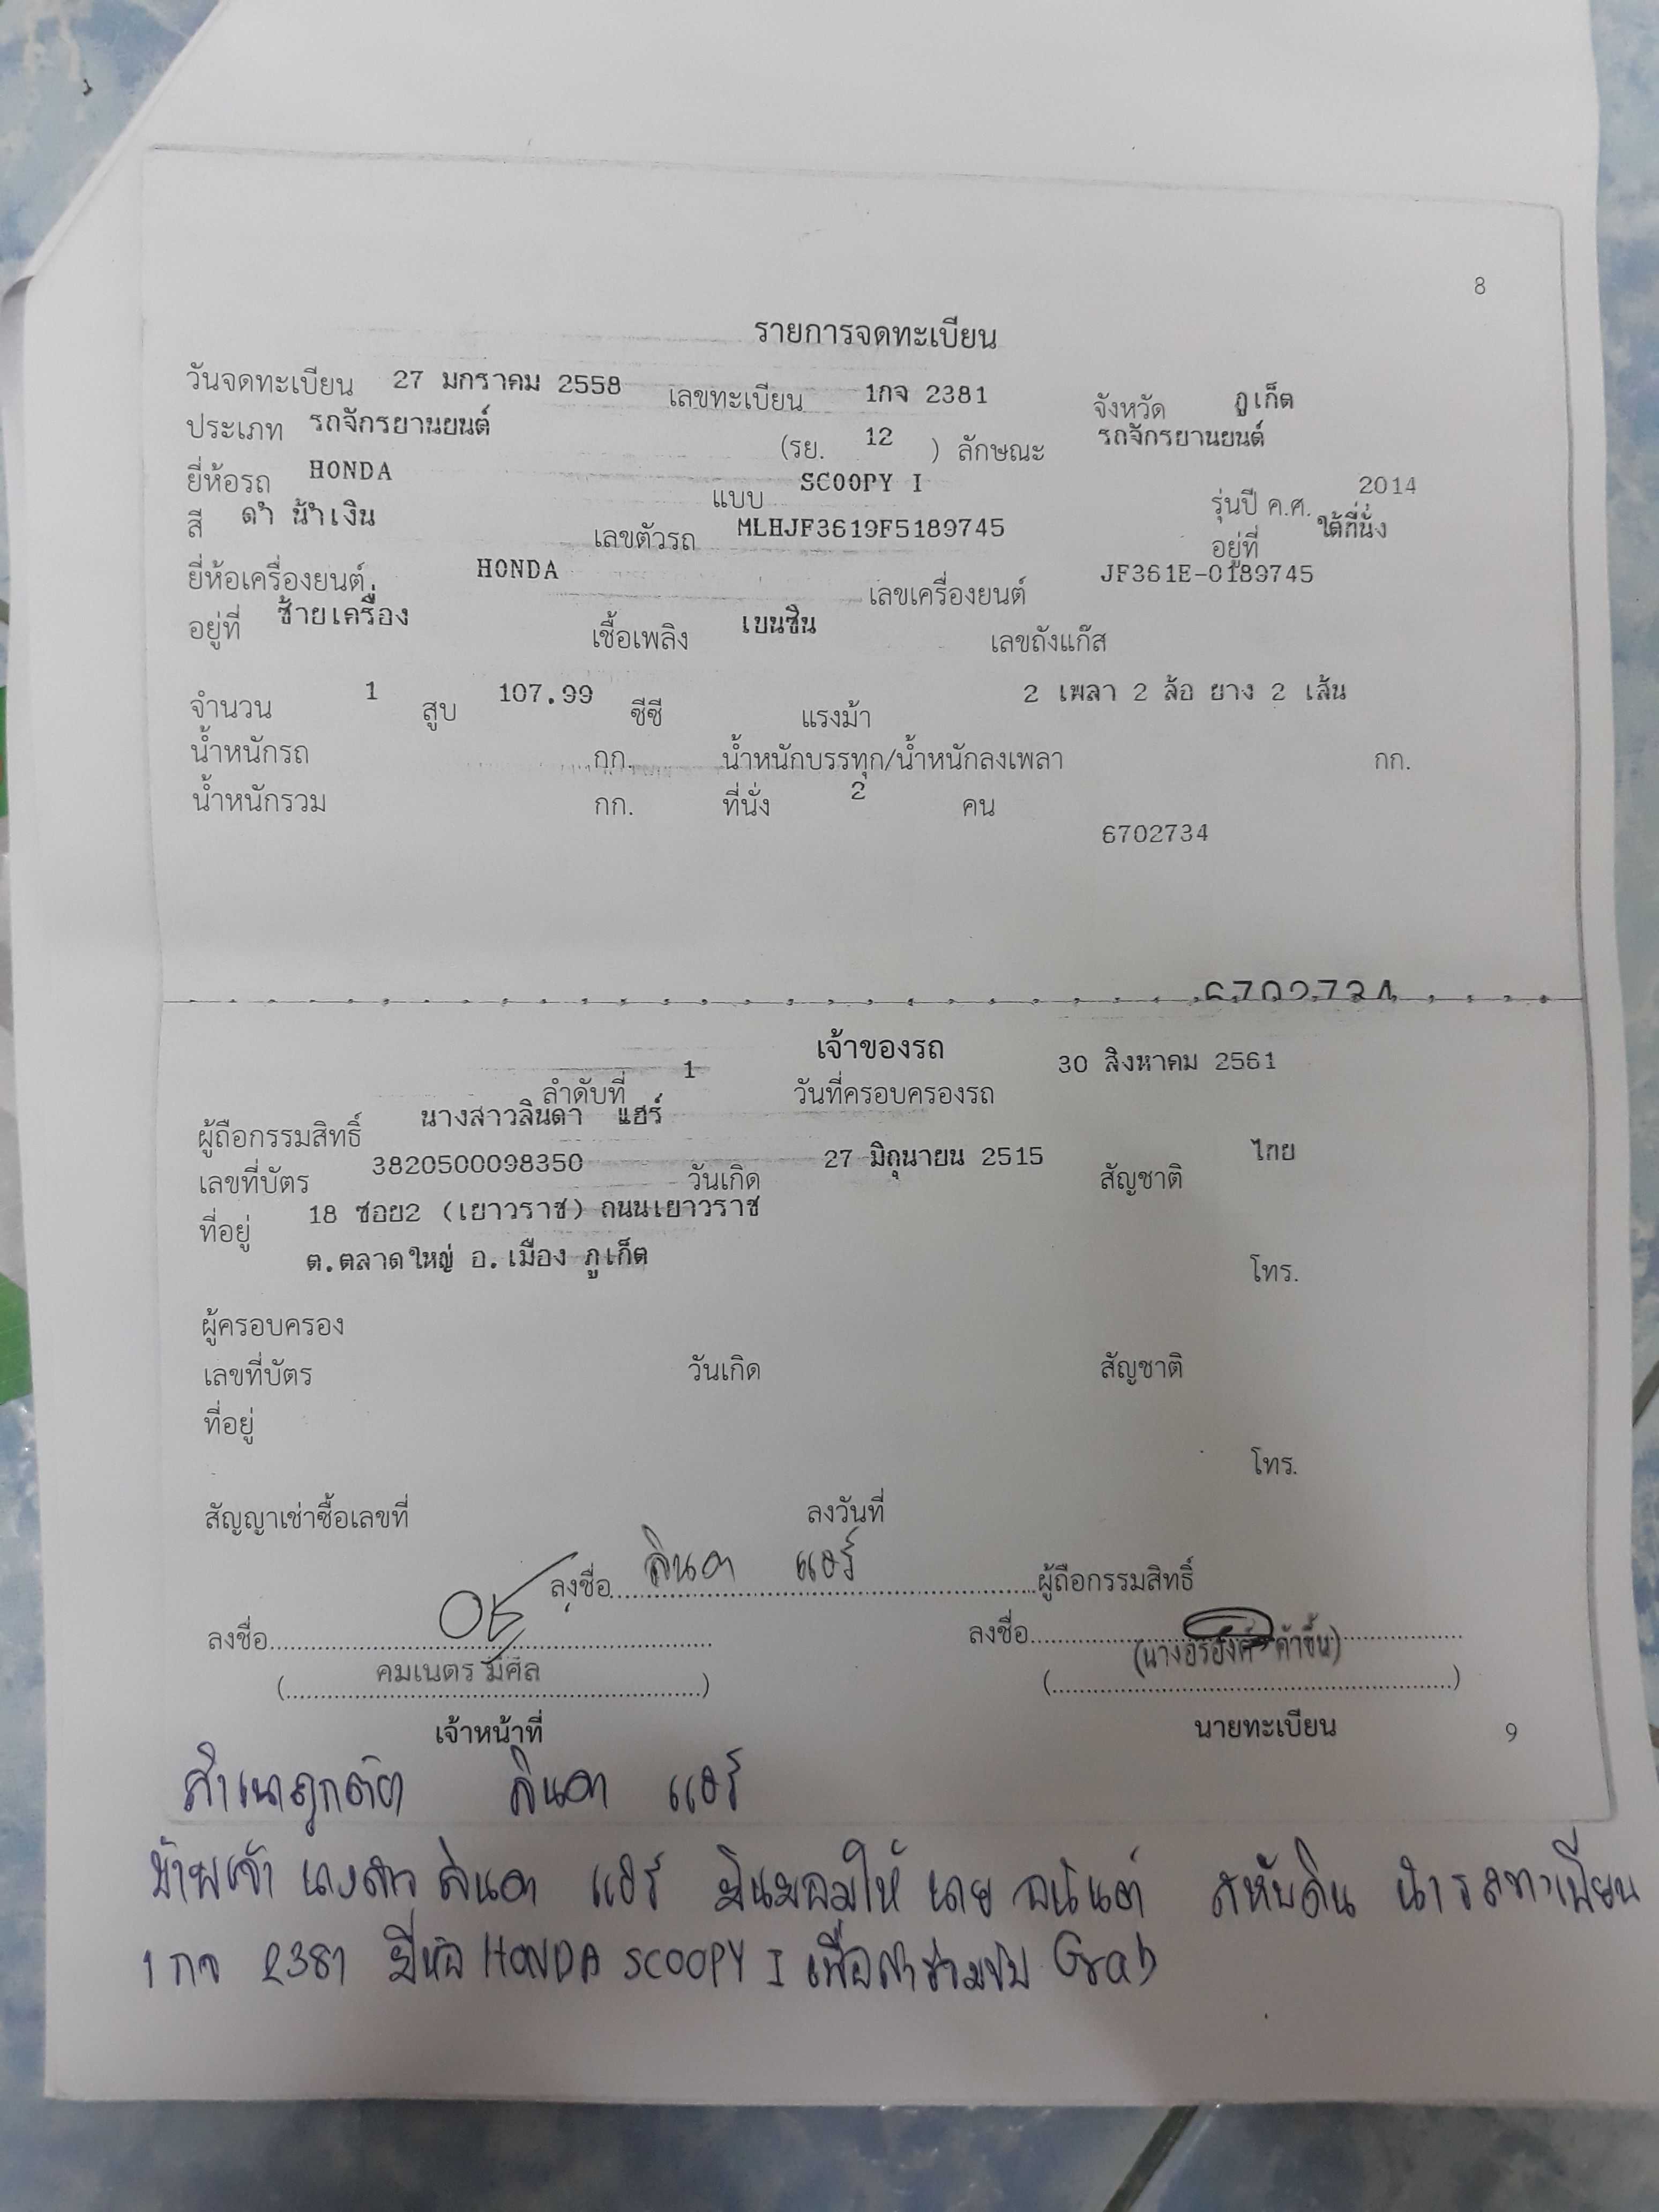 8
รายการจดทะเบียน
วันจดทะเบียน 27 มกราคม 2558 เลขทะเบียน 1กจ 2381 จังหวัด ภูเก็ต
ประเภท รถจักรยานยนต์ (รย. 12 ) ลักษณะ รถจักรยานยนต์
ยี่ห้อรถ HONDA แบบ SCOOPY I รุ่นปี ค.ศ. 2014
สี ดำ น้ำเงิน เลขตัวรถ MLHJF3619F5189745 อยู่ที่ ใต้ที่นั่ง
ยี่ห้อเครื่องยนต์ HONDA เลขเครื่องยนต์ JF361E-0189745
อยู่ที่ ซ้ายเครื่อง เชื้อเพลิง เบนซิน เลขถังแก๊ส
จำนวน 1 สูบ 107.99 ซีซี แรงม้า 2 เพลา 2 ล้อ ยาง 2 เส้น
น้ำหนักรถ กก. น้ำหนักบรรทุก/น้ำหนักลงเพลา กก.
น้ำหนักรวม กก. ที่นั่ง 2 คน
6702734
6702734
เจ้าของรถ
ลำดับที่ 1 วันที่ครอบครองรถ 30 สิงหาคม 2561
ผู้ถือกรรมสิทธิ์ นางสาวลินดา แฮร์
เลขที่บัตร 3820500098350 วันเกิด 27 มิถุนายน 2515 สัญชาติ ไทย
ที่อยู่ 18 ซอย2 (เยาวราช) ถนนเยาวราช
ต.ตลาดใหญ่ อ.เมือง ภูเก็ต โทร.
ผู้ครอบครอง
เลขที่บัตร วันเกิด สัญชาติ
ที่อยู่
โทร.
สัญญาเช่าซื้อเลขที่ ลงวันที่
ลงชื่อ ลินดา แฮร์ ผู้ถือกรรมสิทธิ์
ลงชื่อ ลงชื่อ
(คมเนตร มีศีล) (นางอรอนงค์ ค้าขึ้น)
เจ้าหน้าที่ นายทะเบียน 9
สำเนาถูกต้อง ลินดา แฮร์
ข้าพเจ้า นางสาว ลินดา แฮร์ ยินยอมให้ นาย อนันต์ สหับดิน นำรถทะเบียน
1กจ 2381 ยี่ห้อ HONDA SCOOPY I เพื่อเข้าร่วมขับ Grab